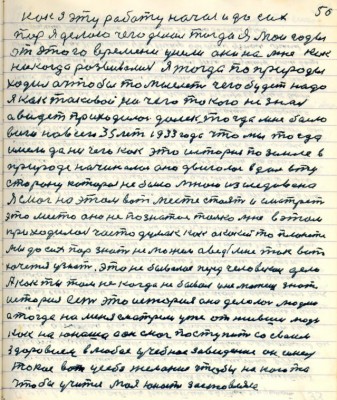 50
как я эту работу начал и до сих
пор я делаю чего делал тогда я, мои годы
от этого времени ушли они на мне как
никогда развивались я тогда по природе
ходил а чтобы то мыслить чего будет надо
я как таковой ни чего такого не знал
а видеть приходилось далек тогда мне было
всего 35 лет 1933 года что мы тогда
имели да ни чего как это история по земле в
природе начиналась оно двигалось вдаль в ту
сторону которая не была мною изследована
я смог на этом вот месте стоять и смотреть
это место оно не познатое только мне в этом
приходилось часто думать как по планете
мы до сих пор знать не можем а ведь мне так вот
хочется узнать. Это не бывалое перед человеком дело
а как ты там не когда не бывал и не можеш знать
история есть это история она делалась людьми
а тогда на меня смотрели уже от жившие люди
как на юношу а он смог поступить со своим
здоровием в любое учебное заведение он имел
такое вот у себя желание чтобы
чтобы учится моя юность заставила